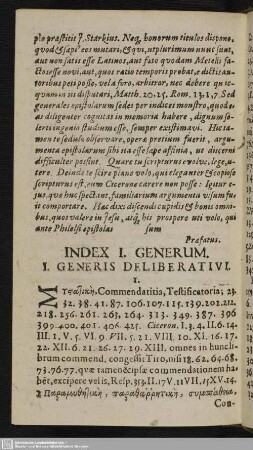 ple præstitit J. Starkius. Neq, honorum titulos dispono,
quod & sæpè eos mutari, & qui, ut plurimum nunc sunt,
aut non satis esse Latinos, aut fato quodam Metelli fa-
esse novi, aut, quos ratio temporis probat, è dictitan-
toribus peti posse, vel à foro, arbitror, nec debere
Matth. 20. 25. Rom. 13. 1. 7. Sed
generales epistolarum sedes per indices monstro, quod e-
as diligenter cognitas in memoria habere, dignum so-
lerti ingenio studium esse, semper existimavi. Hic ta-
men te sedulò observare, operæ pretium fuerit, argu-
menta epistolarum sibi ita esse sæpe affinia, ut discerni
difficulter possint. Quare tu scripturus evolve, lege, u-
tere. Deinde te scire planè volo, qui eleganter & copiosè
scripturus est, eum Cicerone carere non posse: Igitur e-
jus, quæ huc spectant, familiarium argumenta usum fu-
it comportare. Hac dixi discendi cupidis & bonis omni-
bus, quos valere in Jesu, atq; his prospere uti volo, qui
ante Philelfi epistolas sum
Præfatus.
INDEX I. GENERUM.
I. GENERIS DELIBERATIVI.
I.
Commendatitia, Testificatoria; 23.
32. 38. 41. 87. 106. 107. 115. 139. 201. 212.
218. 256. 261. 263. 264. 313. 349. 387. 396
399. 400. 401. 406. 425. Ciceron. I. 3. 4. II. 6. 14-
III. 1. V. 5. VI. 9. VII. 5. 21. VIII. 10. XI. 16. 17.
22. XII. 6. 21. 26. 27. 29. XIII. omnes in hunc li-
brum commend. congessit Tiro, nisi 18. 62. 64-68.
73. 76. 77. quæ tamen & ipsæ commendationem ha-
bēt, excipere velis, Resp. 35. 3. II. 17. V. 11. VII. 15. XV. 14.
2 Παραμυθητικὴ, παραθαρρητικὴ, συμπαθητικὴ,
Con-